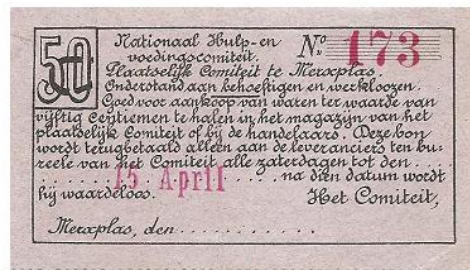 50 Nationaal Hulp-en No 173
voedingscomiteit.
Plaatselijk Comiteit te Merxplas.
Onderstand aan behoeftigen en werkloozen.
Goed voor aankoop van waren ter waarde van
vijftig centiemen te halen in het magazijn van het
plaatselijk Comiteit of bij de handelaars. Deze bon
wordt terugbetaald alleen aan de leveranciers ten bu-
reele van het Comiteit alle zaterdagen tot den ....
15 April ........ na dien datum wordt
hij waardeloos. Het Comiteit,
Merxplas, den ............